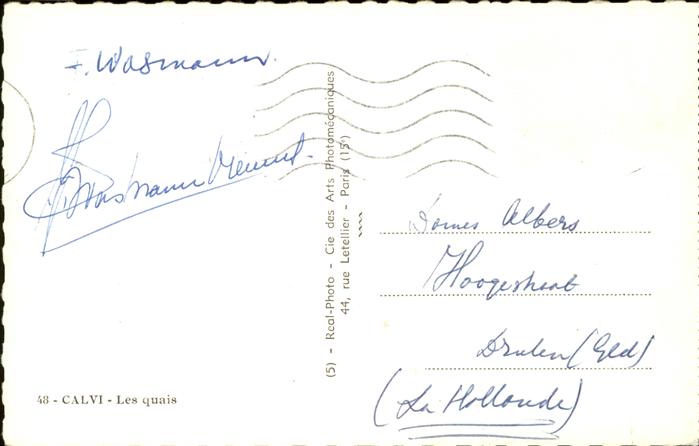 F. Wasmann.
48 - CALVI - Les quais
(5) - Real-Photo - Cie des Arts Photomécaniques
44, rue Letellier - Paris (15°)
Dames Albers
Hoogestraat
Druten (Gld)
(La Hollande)